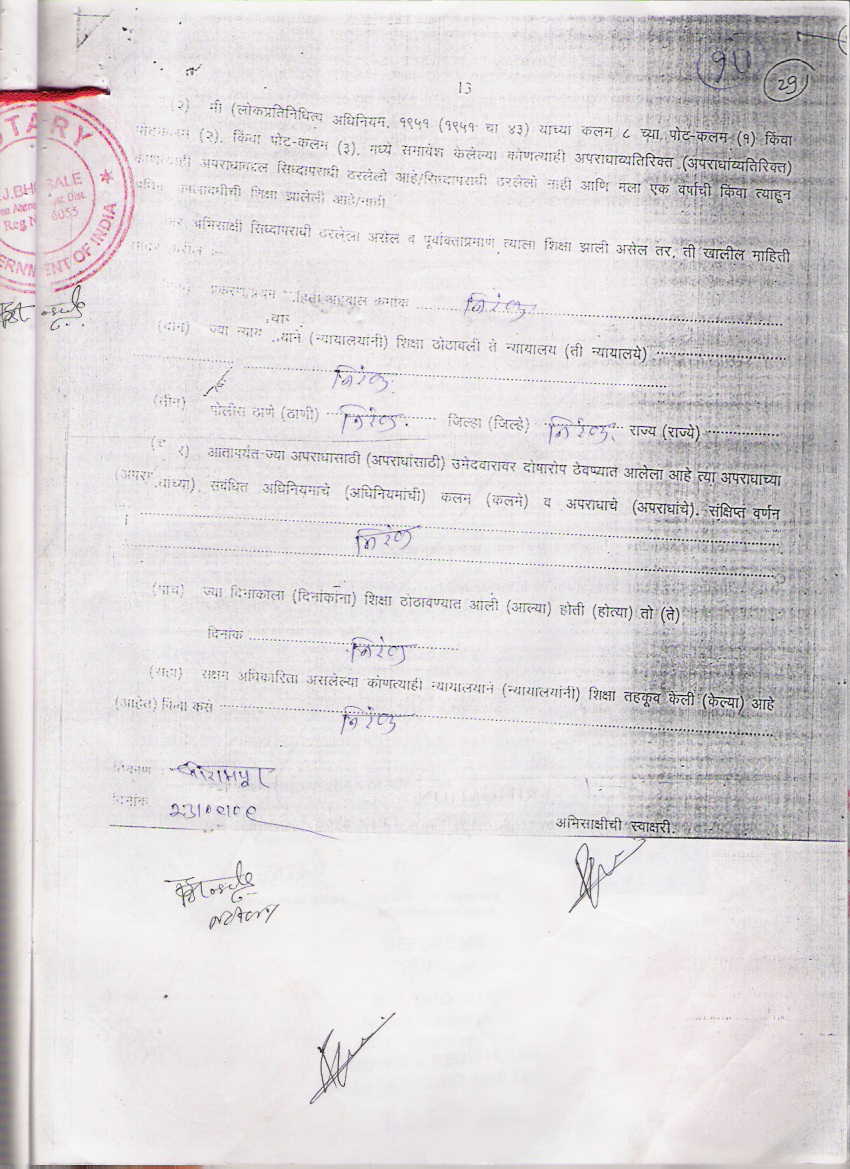 १५
29
13
(२) मी (लोकप्रतिनिधित्व अधिनियम, १९५१ (१९५१ चा ४३) याच्या कलम ८ च्या, पोट-कलम (१) किंवा
पोटकलम (२), किंवा पोट-कलम (३), मध्ये समावेश केलेल्या कोणत्याही अपराधाव्यतिरिक्त (अपराधांव्यतिरिक्त)
कोणत्याही अपराधाबद्दल सिध्दापराधी ठरलेलो आहे/सिध्दापराधी ठरलेलो नाही आणि मला एक वर्षाची किंवा त्याहून
कालावधीची शिक्षा झालेली आहे/नाही
अभिसाक्षी सिध्दापराधी ठरलेला असेल व पूर्वोक्ताप्रमाणे त्याला शिक्षा झाली असेल तर, ती खालील माहिती
प्रकरण/प्रथम माहिती अहवाल क्रमांक .......... निरंक
(दोन) ज्या न्याया याने (न्यायालयांनी) शिक्षा ठोठावली ते न्यायालय (ती न्यायालये) ..........
निरंक
(तीन) पोलीस ठाणे (ठाणी) निरंक. जिल्हा (जिल्हे) निरंक. राज्य (राज्ये) ..........
आतापर्यंत ज्या अपराधासाठी (अपराधांसाठी) उमेदवारावर दोषारोप ठेवण्यात आलेला आहे त्या अपराधाच्या
(अपराधांच्या), संबंधित अधिनियमाचे (अधिनियमांची) कलम (कलमे) व अपराधाचे (अपराधांचे). संक्षिप्त वर्णन
निरंक
(पाच) ज्या दिनांकाला (दिनांकांना) शिक्षा ठोठावण्यात आली (आल्या) होती (होत्या) तो (ते)
दिनांक .......... निरंक
(सहा) सक्षम अधिकारिता असलेल्या कोणत्याही न्यायालयाने (न्यायालयांनी) शिक्षा तहकूब केली (केल्या) आहे
(आहेत) किंवा कसे .......... निरंक
ठिकाण : श्रीरामपूर
दिनांक
अभिसाक्षीची स्वाक्षरी.
NOTARY